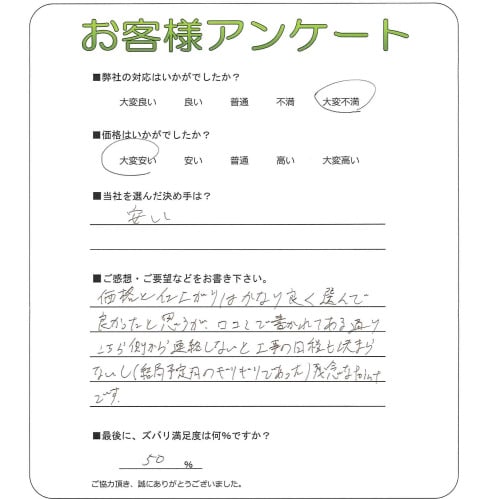 お客様アンケート
■弊社の対応はいかがでしたか？
大変良い 良い 普通 不満 大変不満
■価格はいかがでしたか？
大変安い 安い 普通 高い 大変高い
■当社を選んだ決め手は？
安い
■ご感想・ご要望などをお書き下さい。
価格と仕上がりはかなり良く選んで
良かったと思うが、口コミで書かれてある通り
こちら側から連絡しないと工事の日程も決まら
ないし(結局予定月のギリギリであった)残念なpoint
です.
■最後に、ズバリ満足度は何%ですか？
50 %
ご協力頂き、誠にありがとうございました。